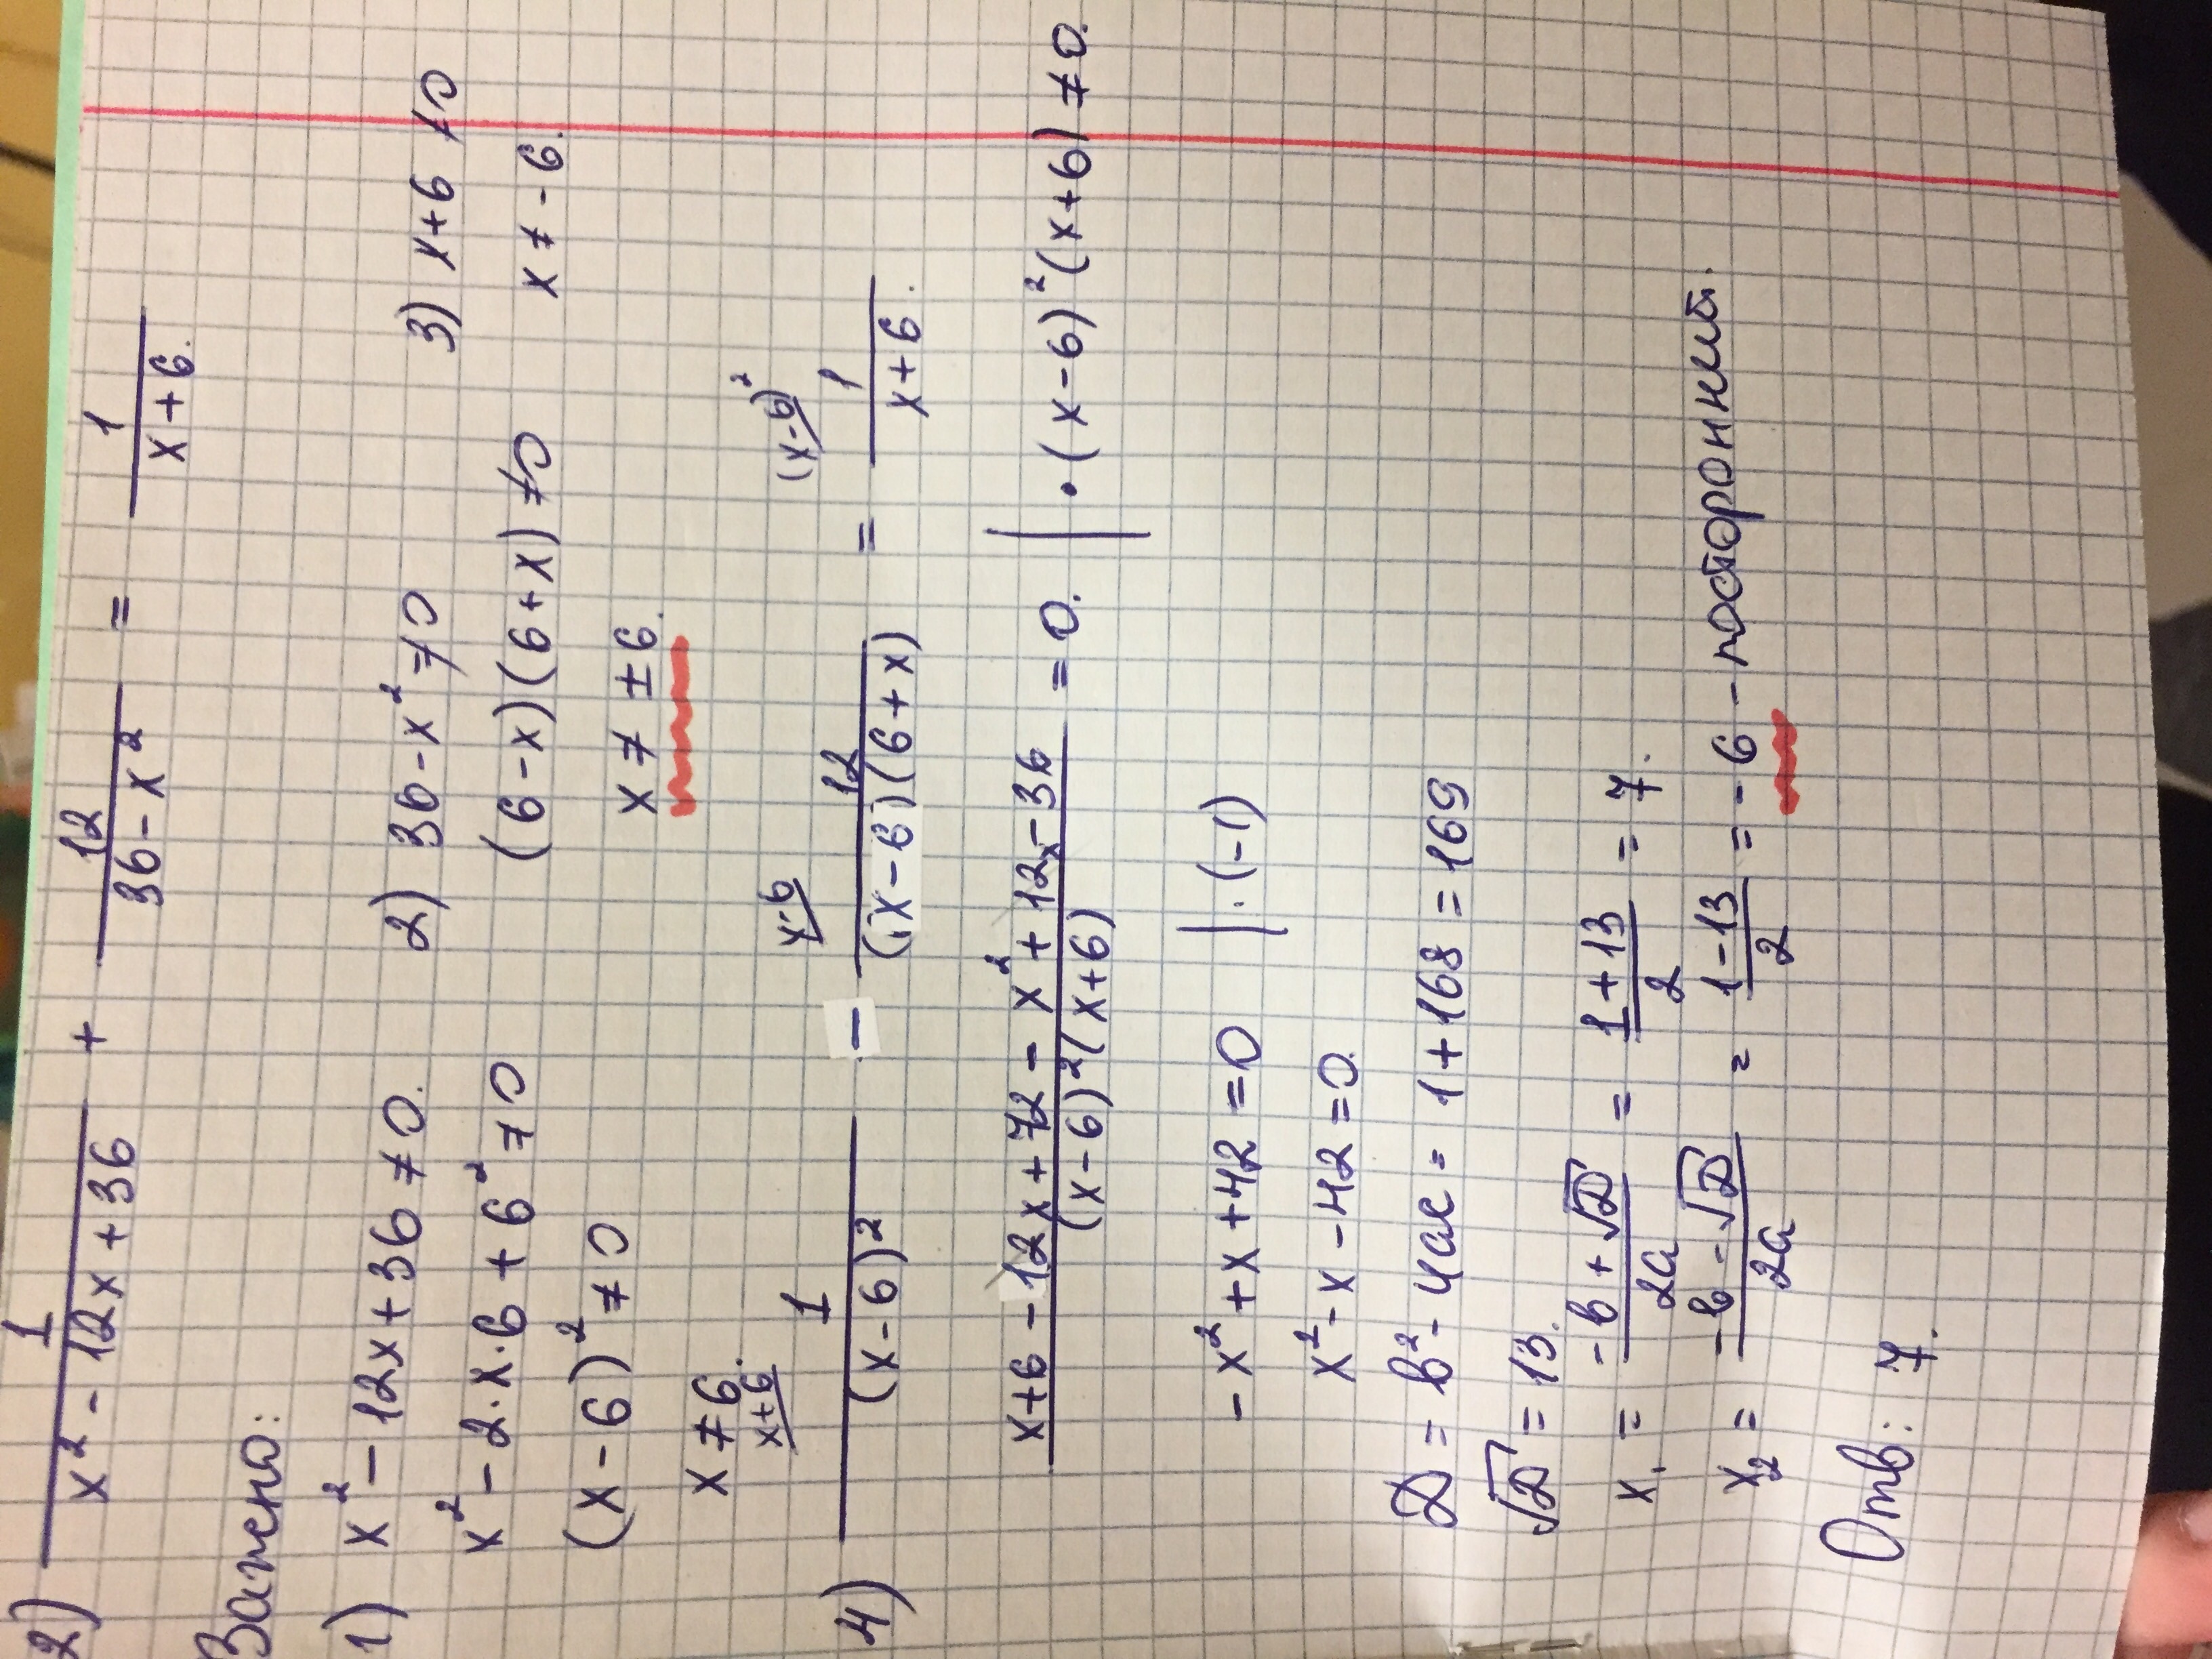 2) 1/(x² - 12x + 36) + 12/(36 - x²) = 1/(x + 6).
Важно:
1) x² - 12x + 36 ≠ 0. 2) 36 - x² ≠ 0 3) x + 6 ≠ 0
x² - 2·x·6 + 6² ≠ 0 (6 - x)(6 + x) ≠ 0 x ≠ -6.
(x - 6)² ≠ 0 x ≠ ±6.
x ≠ 6.
x+6 x-6 (x-6)²
4) 1/(x - 6)² - 12/((x - 6)(6 + x)) = 1/(x + 6).
(x + 6 - 12x + 72 - x² + 12x - 36)/((x - 6)²(x + 6)) = 0. | · (x - 6)²(x + 6) ≠ 0.
-x² + x + 42 = 0 | · (-1)
x² - x - 42 = 0.
D = b² - 4ac = 1 + 168 = 169
√D = 13.
x₁ = (-b + √D)/2a = (1 + 13)/2 = 7.
x₂ = (-b - √D)/2a = (1 - 13)/2 = -6 - посторонний.
Отв: 7.